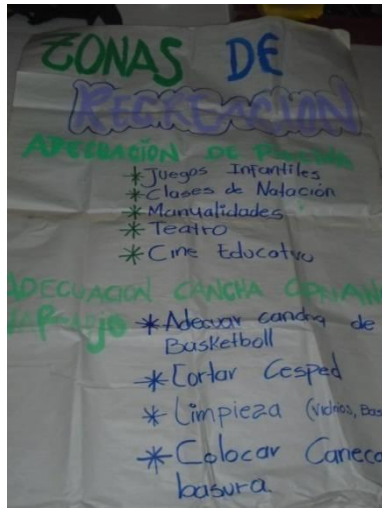 ZONAS DE
RECREACION
ADECUACIÓN DE
*Juegos Infantiles
*Clases de Natación
*Manualidades
*Teatro
*Cine Educativo
ADECUACION CANCHA
*Adecuar cancha de
Basketball
*Cortar Cesped
*Limpieza (Vidrios, Bas
*Colocar Caneca
basura